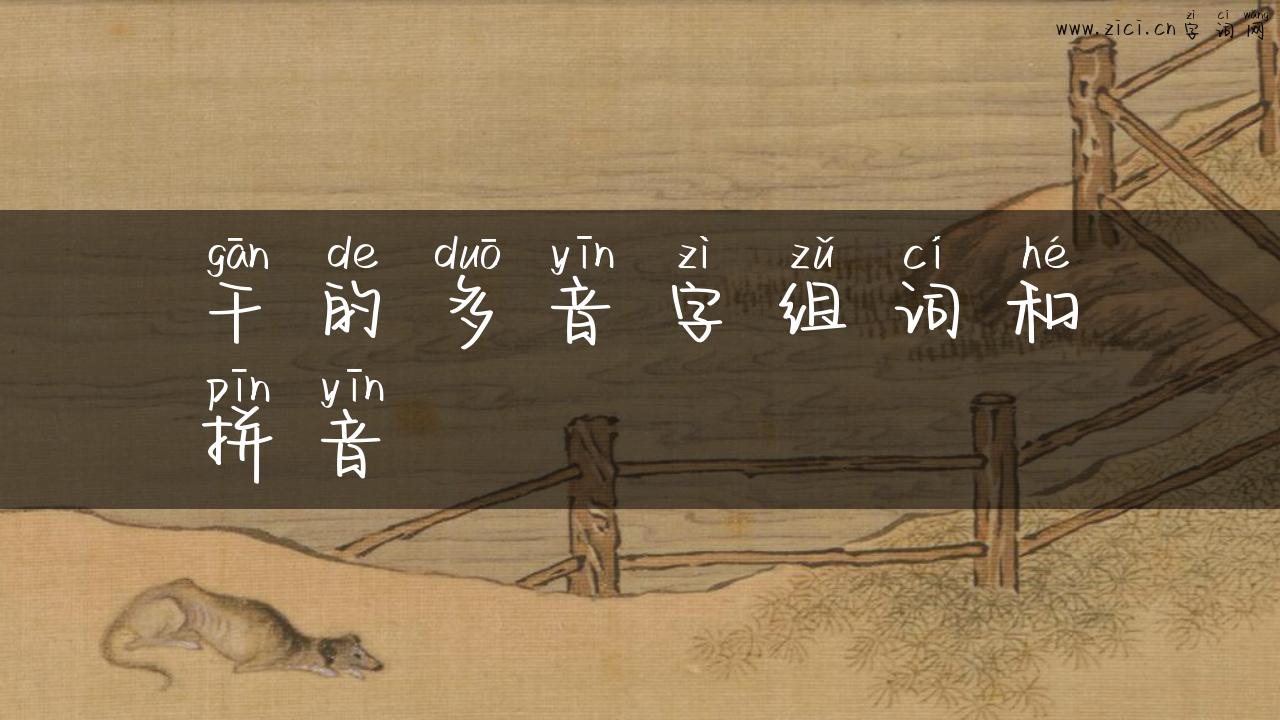 zì cí wǎng
www.zici.cn 字词网
gān de duō yīn zì zǔ cí hé
干的多音字组词和
pīn yīn
拼音